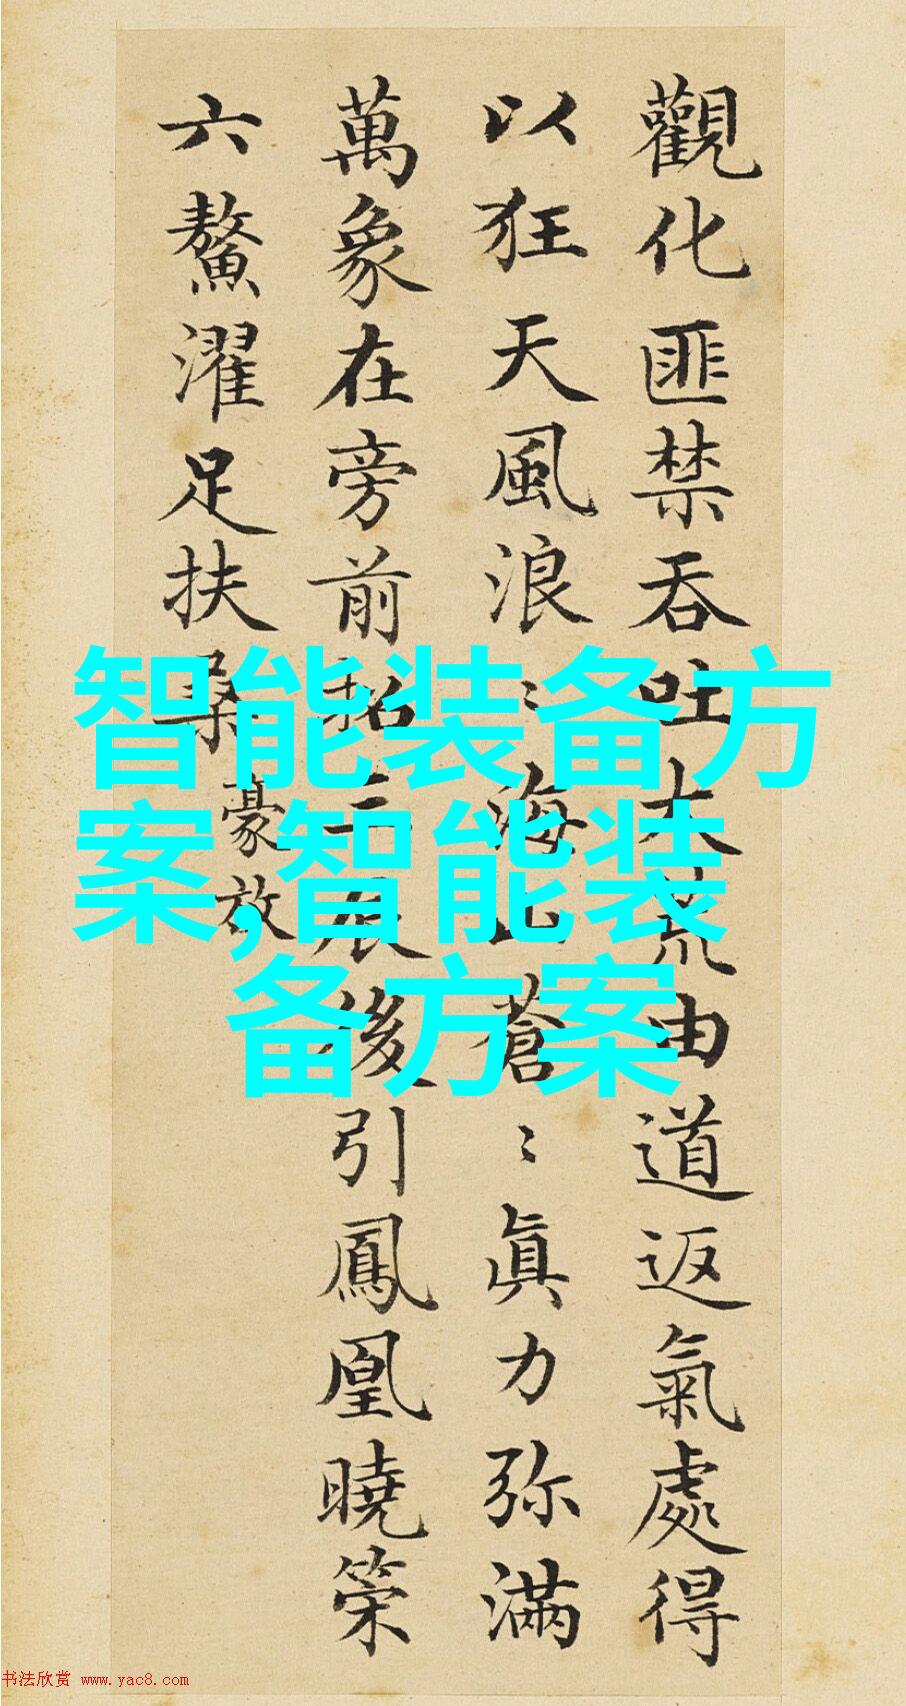 觀化匪禁吞吐大荒由道返氣處得
以狂天風浪〻海山蒼〻眞力弥滿
萬象在旁前招三辰後引鳳凰曉策
六鰲濯足扶桑
豪放
智能装备方
案,智能装
备方案
书法欣赏 www.yac8.com